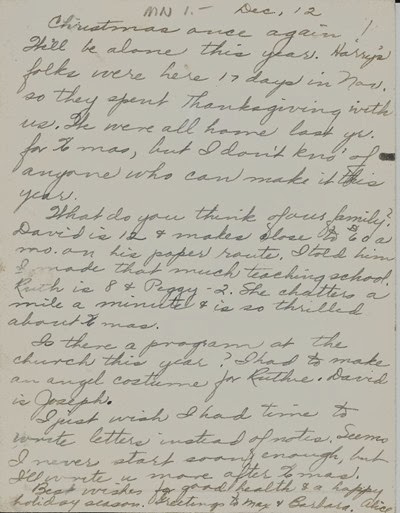 MN 1.- Dec, 12
Christmas once again!
We'll be alone this year. Harry's
folks were here 17 days in Nov.
so they spent Thanksgiving with
us. We were all home last yr.
for Xmas, but I don't kno' of
anyone who can make it this
year.
What do you think of our family?
David is 12 & makes close to $60 a
mo. on his paper route. I told him
I made that much teaching school.
Ruth is 8 & Peggy - 2. She chatters a
mile a minute & is so thrilled
about Xmas.
Is there a program at the
church this year? I had to make
an angel costume for Ruthie. David
is Joseph.
I just wish I had time to
write letters instead of notes. Seems
I never start soon enough, but
I'll write u more after Xmas.
Best wishes for good health & a happy
holiday season. Greetings to Max & Barbara. Alice